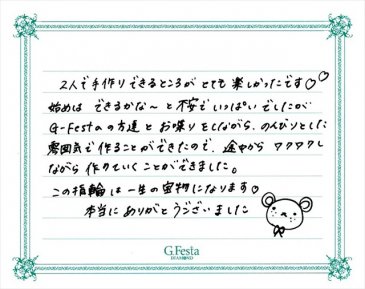 2人で手作りできるところがとても楽しかったです♡♡
始めは できるかな〜と不安でいっぱいでしたが
G-Festaの方達とお喋りをしながら、のんびりとした
雰囲気で作ることができたので、途中からワクワクし
ながら作りていくことができました。
この指輪は一生の宝物になります♡
本当にありがとうございました
G.Festa
DIAMOND